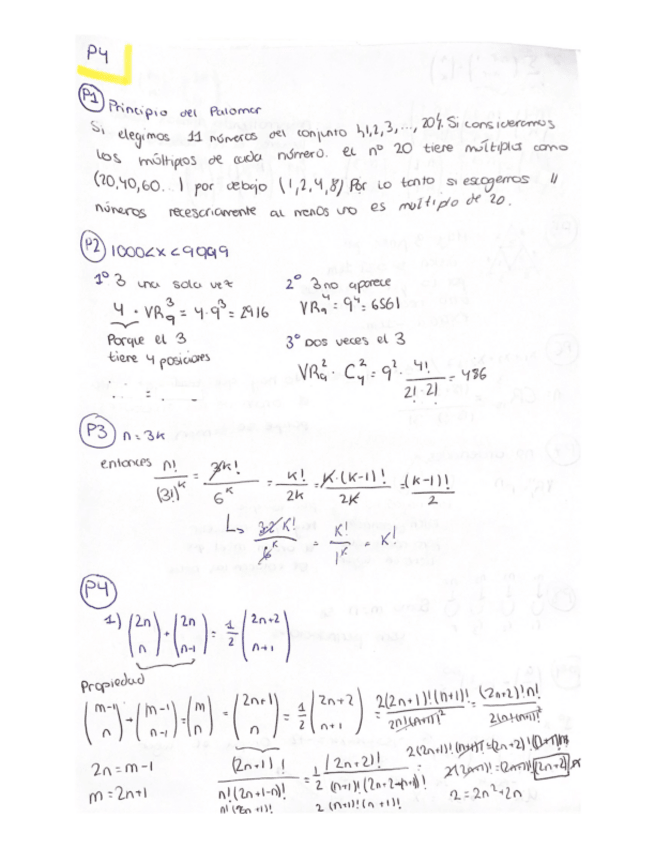 P4
P1 Principio del Palomar
Si elegimos 11 números del conjunto {1,2,3,...,20}. Si consideramos
los múltiplos de cada número. el nº 20 tiene múltiplos como
(20,40,60...) por debajo (1,2,4,8) Por lo tanto si escogemos 11
números necesariamente al menos uno es múltiplo de 20.
P2 1000<x<9999
1º 3 una sola vez
4 · VR₉³ = 4·9³ = 2916
Porque el 3
tiene 4 posiciones
2º 3 no aparece
VR₉⁴ = 9⁴ = 6561
3º Dos veces el 3
VR₉² · C₄² = 9² · 4!/(2!·2!) = 486
P3 n = 3k
entonces n!/(3!)^k = 3k!/6^k = k!/2k = k·(k-1)!/2k = (k-1)!/2
k!/1^k = k!
P4
1) (2n n) + (2n n-1) = 1/2 (2n+2 n+1)
Propiedad
(m-1 n) + (m-1 n-1) = (m n) = (2n+1 n) = 1/2 (2n+2 n+1)
2n = m-1
m = 2n+1
(2n+1)!/(n!(2n+1-n)!) = 1/2 (2n+2)!
2 = 2n²+2n